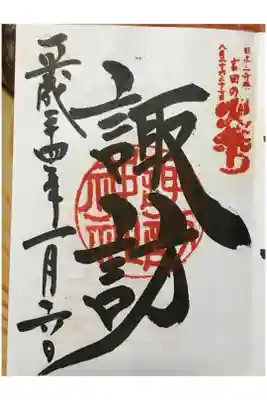 日本三奇祭
吉田の火祭り
八月二十六二十七日
諏訪
平成二十四年一月六日